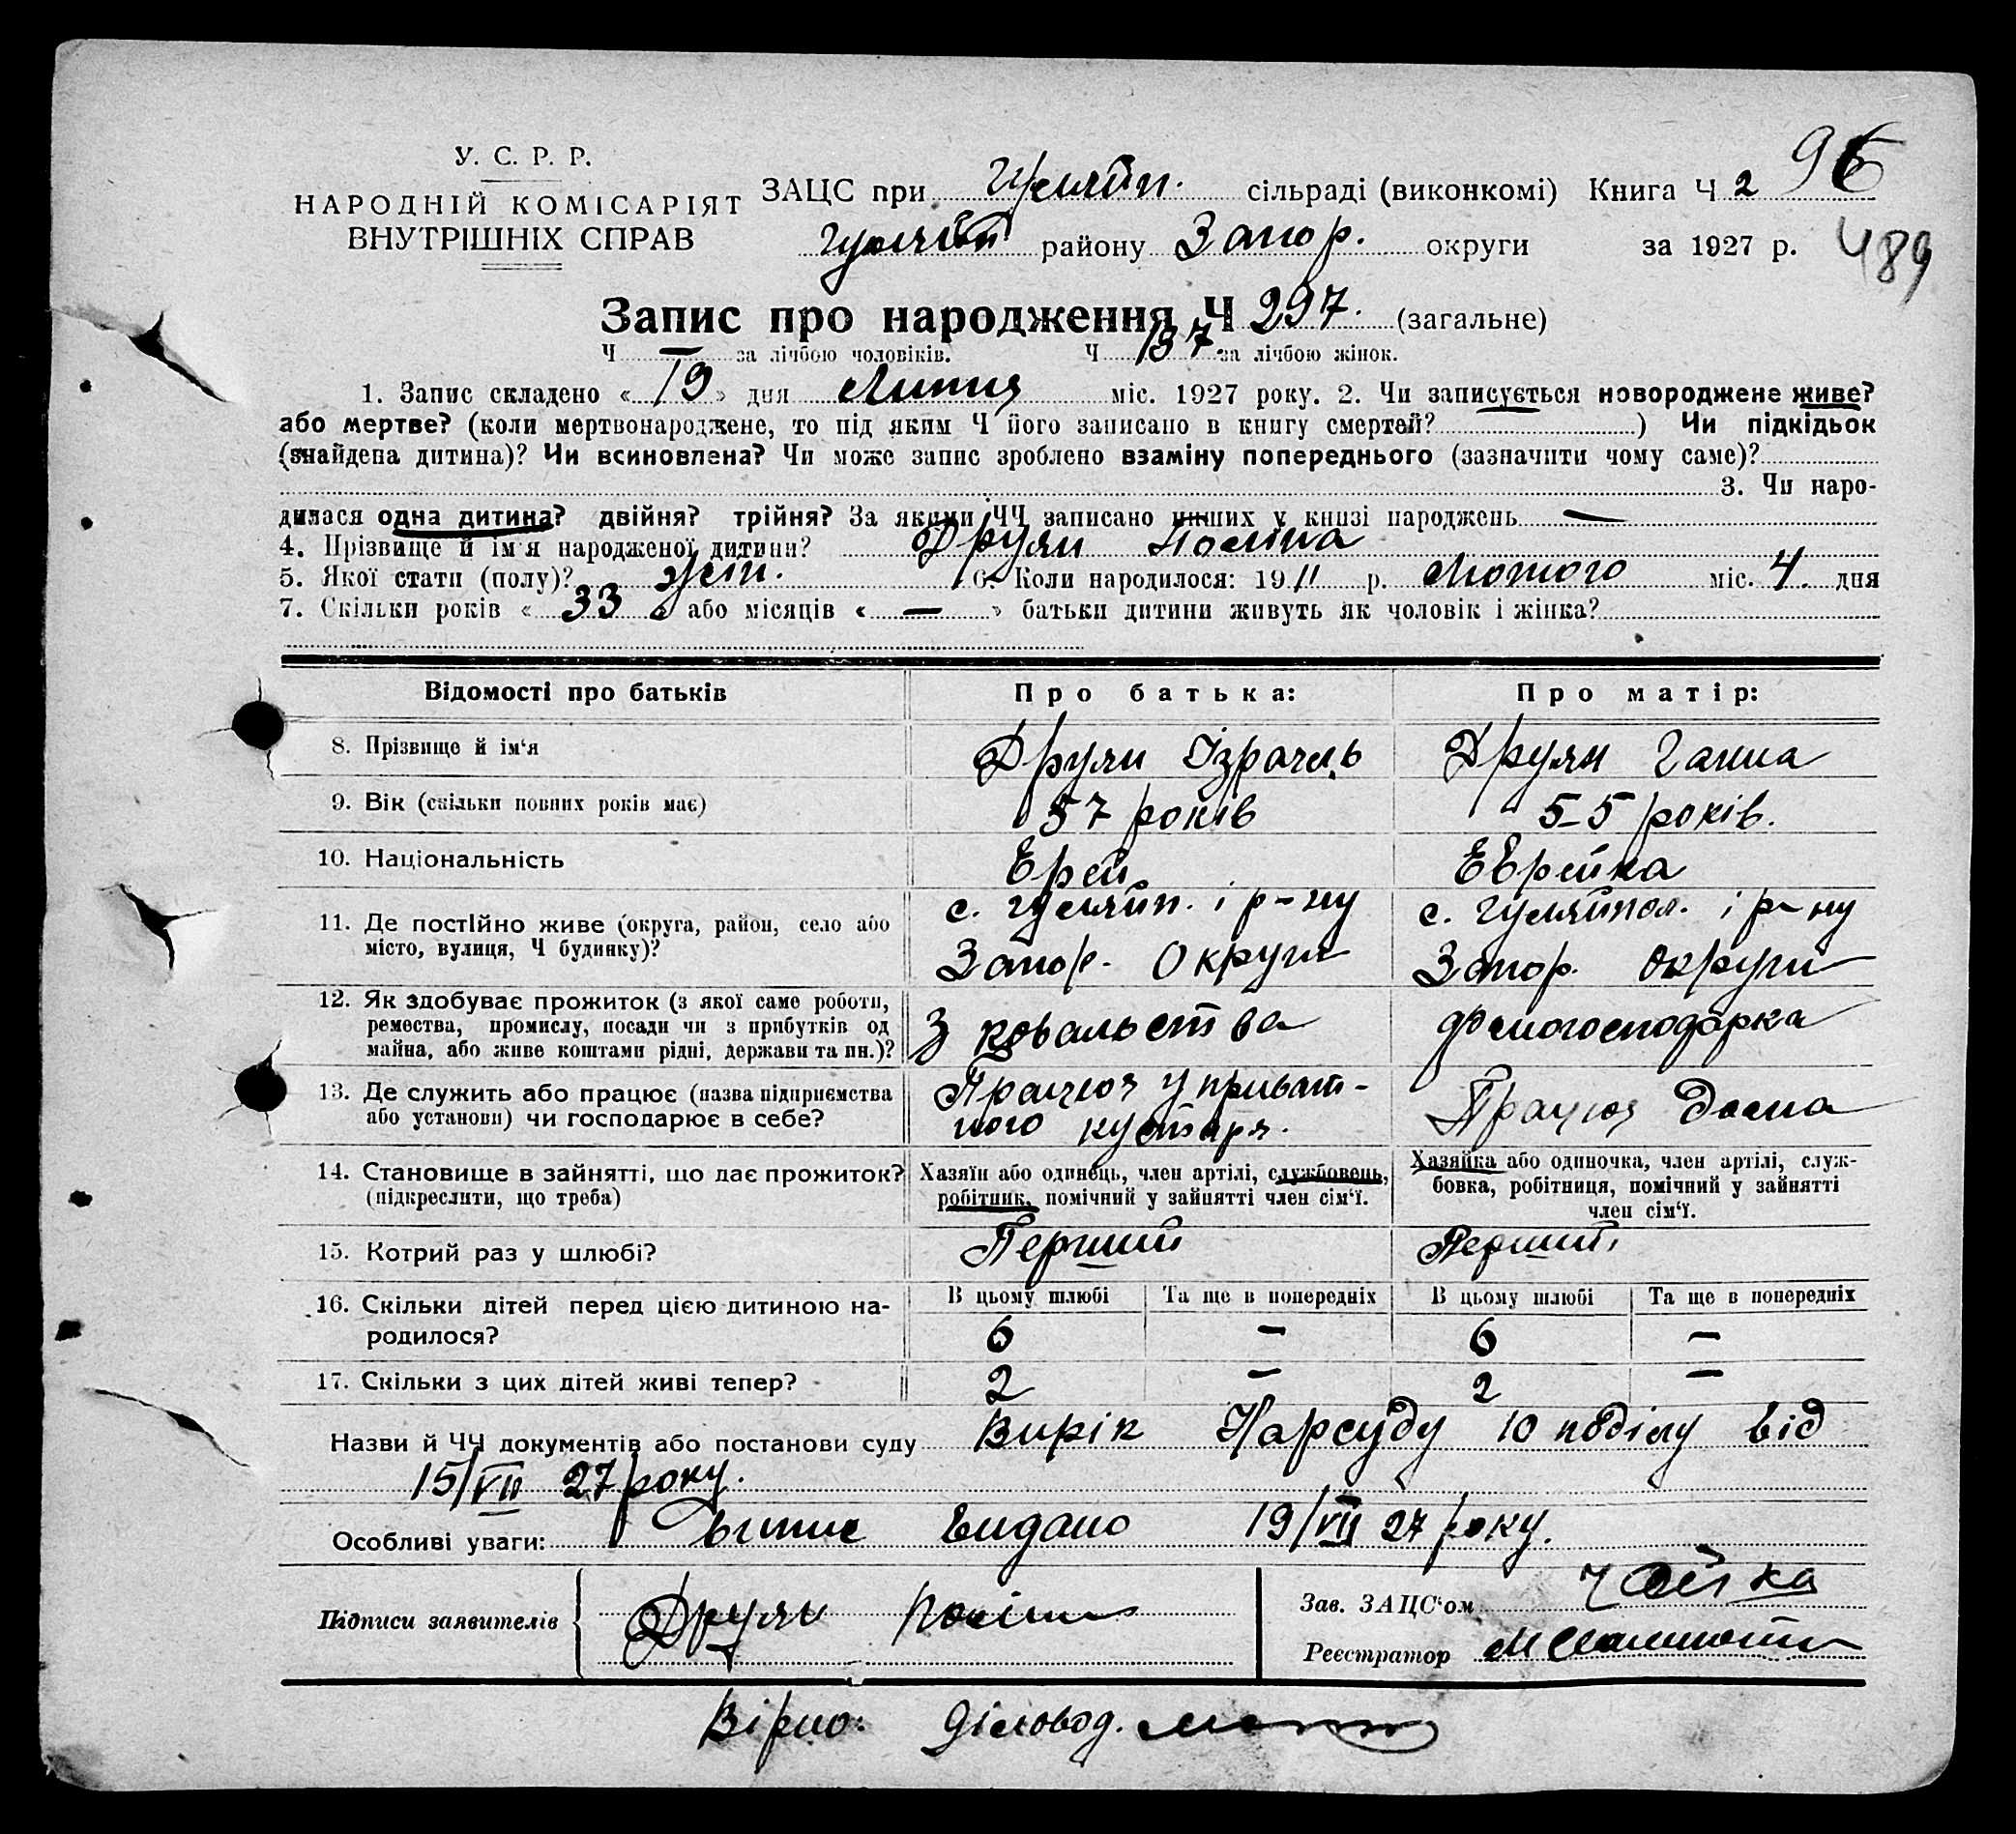 96
У. С. Р. Р.
НАРОДНІЙ КОМІСАРІЯТ
ВНУТРІШНІХ СПРАВ
ЗАЦС при Гуляйп. сільраді (виконкомі) Книга Ч 2
Гуляйп. району Запор. округи за 1927 р.
489
Запис про народження Ч 297. (загальне)
Ч — за лічбою чоловіків. Ч 137 за лічбою жінок.
1. Запис складено « 19 » дня Липня міс. 1927 року. 2. Чи записується новороджене живе?
або мертве? (коли мертвонароджене, то під яким Ч його записано в книгу смертей? ) Чи підкідьок
(знайдена дитина)? Чи всиновлена? Чи може запис зроблено взаміну попереднього (зазначити чому саме)?
3. Чи наро-
дилася одна дитина? двійня? трійня? За якими ЧЧ записано инших у книзі народжень —
4. Прізвище й ім'я народженої дитини? Друян Поліна
5. Якої стати (полу)? жін. 6. Коли народилося: 1911 р. Лютого міс. 4. дня
7. Скільки років « 33 » або місяців « — » батьки дитини живуть як чоловік і жінка?
Відомості про батьків Про батька: Про матір:
8. Прізвище й ім'я Друян Ізраель Друян Ганна
9. Вік (скільки повних років має) 57 років 55 років.
10. Національність Єрей Еврейка
11. Де постійно живе (округа, район, село або с. Гуляйп. і р-ну с. Гуляйпол. і р-ну
місто, вулиця, Ч будинку)? Запор. Округи Запор. Округи
12. Як здобуває прожиток (з якої саме роботи,
ремества, промислу, посади чи з прибутків од З ковальства домогосподарка
майна, або живе коштами рідні, держави та ин.)?
13. Де служить або працює (назва підприємства Працює у приват-
або установи) чи господарює в себе? ного кустаря. Працює дома
14. Становище в зайнятті, що дає прожиток? Хазяїн або одинець, член артілі, службовець, Хазяйка або одиночка, член артілі, служ-
(підкреслити, що треба) робітник, помічний у зайнятті член сім'ї. бовка, робітниця, помічний у зайнятті
член сім'ї.
15. Котрий раз у шлюбі? Перший Перший
16. Скільки дітей перед цією дитиною на- В цьому шлюбі Та ще в попередніх В цьому шлюбі Та ще в попередніх
родилося? 6 — 6 —
17. Скільки з цих дітей живі тепер? 2 — 2 —
Назви й ЧЧ документів або постанови суду Вирік Нарсуду 10 поділу від
15/VII 27 року.
Особливі уваги: Витис видано 19/VII 27 року.
Підписи заявителів Друян Поліна
Зав. ЗАЦС'ом Чайка
Реєстратор
Вірно: Діловод.